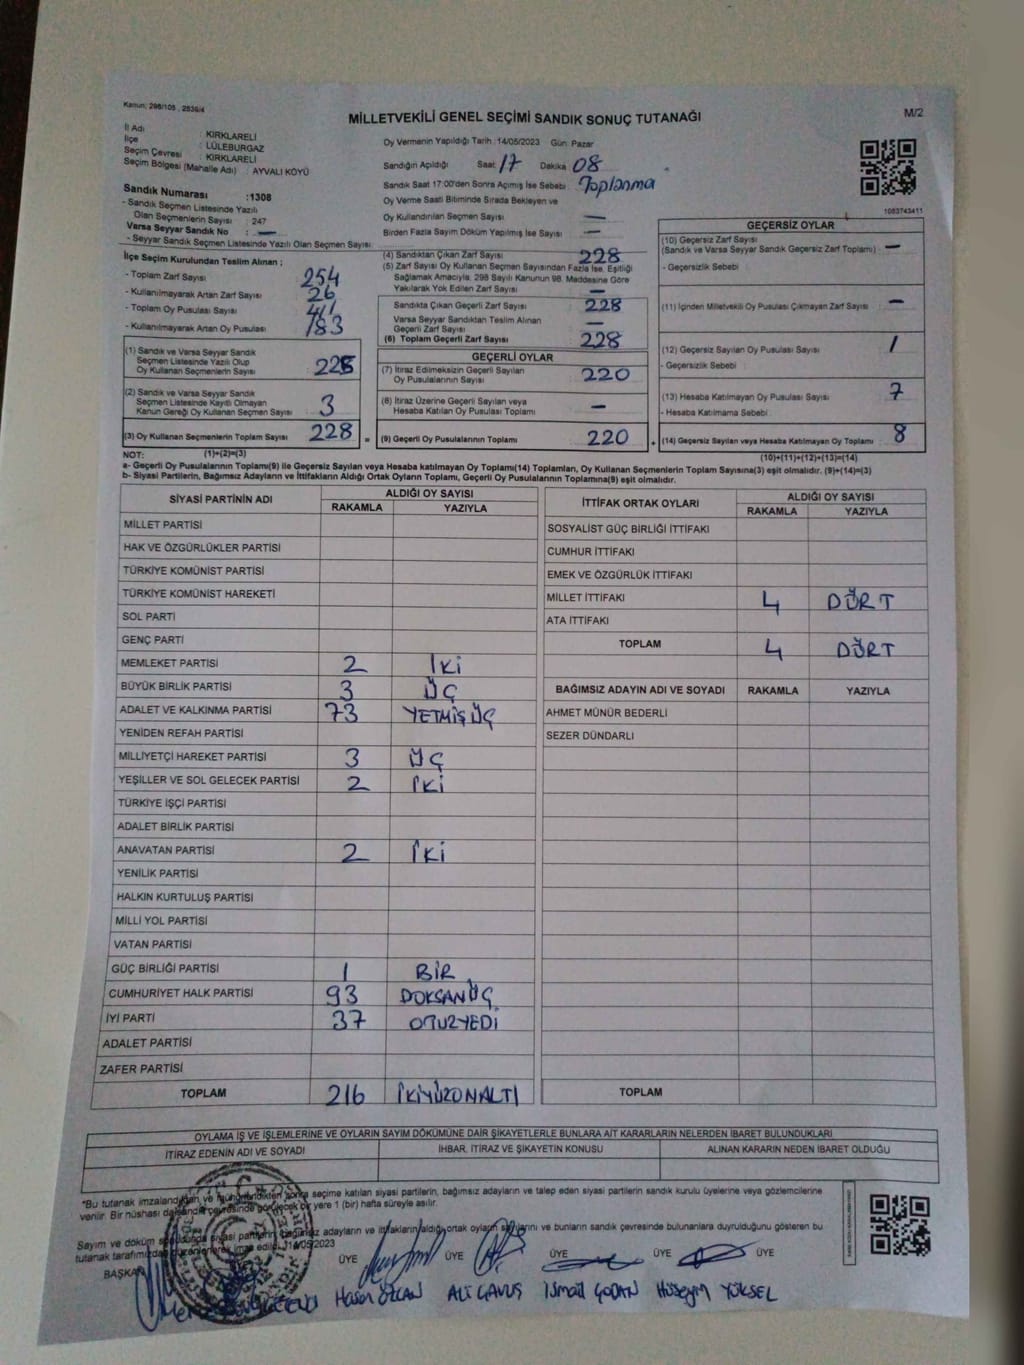 Kanun; 298/105 , 2839/4
MİLLETVEKİLİ GENEL SEÇİMİ SANDIK SONUÇ TUTANAĞI
M/2
İl Adı : KIRKLARELİ
İlçe : LÜLEBURGAZ
Seçim Çevresi : KIRKLARELİ
Seçim Bölgesi (Mahalle Adı) : AYVALI KÖYÜ
Sandık Numarası :1308
- Sandık Seçmen Listesinde Yazılı
Olan Seçmenlerin Sayısı : 247
Varsa Seyyar Sandık No : —
- Seyyar Sandık Seçmen Listesinde Yazılı Olan Seçmen Sayısı :
Oy Vermenin Yapıldığı Tarih :14/05/2023 Gün: Pazar
Sandığın Açıldığı Saat 17 Dakika 08
Sandık Saat 17:00'den Sonra Açılmış İse Sebebi : Toplanma
Oy Verme Saati Bitiminde Sırada Bekleyen ve
Oy Kullandırılan Seçmen Sayısı : —
Birden Fazla Sayım Döküm Yapılmış İse Sayısı : —
1083743411
İlçe Seçim Kurulundan Teslim Alınan ;
- Toplam Zarf Sayısı 254
- Kullanılmayarak Artan Zarf Sayısı 26
- Toplam Oy Pusulası Sayısı 411
- Kullanılmayarak Artan Oy Pusulası 183
(1) Sandık ve Varsa Seyyar Sandık
Seçmen Listesinde Yazılı Olup
Oy Kullanan Seçmenlerin Sayısı 225
(2) Sandık ve Varsa Seyyar Sandık
Seçmen Listesinde Kayıtlı Olmayan
Kanun Gereği Oy Kullanan Seçmen Sayısı 3
(3) Oy Kullanan Seçmenlerin Toplam Sayısı 228 =
(1)+(2)=(3)
(4) Sandıktan Çıkan Zarf Sayısı 228
(5) Zarf Sayısı Oy Kullanan Seçmen Sayısından Fazla İse, Eşitliği
Sağlamak Amacıyla, 298 Sayılı Kanunun 98. Maddesine Göre
Yakılarak Yok Edilen Zarf Sayısı —
Sandıkta Çıkan Geçerli Zarf Sayısı 228
Varsa Seyyar Sandıktan Teslim Alınan
Geçerli Zarf Sayısı —
(6) Toplam Geçerli Zarf Sayısı 228
GEÇERLİ OYLAR
(7) İtiraz Edilmeksizin Geçerli Sayılan
Oy Pusulalarının Sayısı 220
(8) İtiraz Üzerine Geçerli Sayılan veya
Hesaba Katılan Oy Pusulası Toplamı —
(9) Geçerli Oy Pusulalarının Toplamı 220 +
GEÇERSİZ OYLAR
(10) Geçersiz Zarf Sayısı
(Sandık ve Varsa Seyyar Sandık Geçersiz Zarf Toplamı) —
- Geçersizlik Sebebi :
(11) İçinden Milletvekili Oy Pusulası Çıkmayan Zarf Sayısı —
(12) Geçersiz Sayılan Oy Pusulası Sayısı 1
- Geçersizlik Sebebi :
(13) Hesaba Katılmayan Oy Pusulası Sayısı 7
- Hesaba Katılmama Sebebi :
(14) Geçersiz Sayılan veya Hesaba Katılmayan Oy Toplamı 8
(10)+(11)+(12)+(13)=(14)
NOT:
a- Geçerli Oy Pusulalarının Toplamı(9) ile Geçersiz Sayılan veya Hesaba katılmayan Oy Toplamı(14) Toplamları, Oy Kullanan Seçmenlerin Toplam Sayısına(3) eşit olmalıdır. (9)+(14)=(3)
b- Siyasi Partilerin, Bağımsız Adayların ve İttifakların Aldığı Ortak Oyların Toplamı, Geçerli Oy Pusulalarının Toplamına(9) eşit olmalıdır.
SİYASİ PARTİNİN ADI ALDIĞI OY SAYISI
RAKAMLA YAZIYLA
MİLLET PARTİSİ
HAK VE ÖZGÜRLÜKLER PARTİSİ
TÜRKİYE KOMÜNİST PARTİSİ
TÜRKİYE KOMÜNİST HAREKETİ
SOL PARTİ
GENÇ PARTİ
MEMLEKET PARTİSİ 2 İKİ
BÜYÜK BİRLİK PARTİSİ 3 ÜÇ
ADALET VE KALKINMA PARTİSİ 73 YETMİŞ ÜÇ
YENİDEN REFAH PARTİSİ
MİLLİYETÇİ HAREKET PARTİSİ 3 ÜÇ
YEŞİLLER VE SOL GELECEK PARTİSİ 2 İKİ
TÜRKİYE İŞÇİ PARTİSİ
ADALET BİRLİK PARTİSİ
ANAVATAN PARTİSİ 2 İKİ
YENİLİK PARTİSİ
HALKIN KURTULUŞ PARTİSİ
MİLLİ YOL PARTİSİ
VATAN PARTİSİ
GÜÇ BİRLİĞİ PARTİSİ 1 BİR
CUMHURİYET HALK PARTİSİ 93 DOKSAN ÜÇ
İYİ PARTİ 37 OTUZYEDİ
ADALET PARTİSİ
ZAFER PARTİSİ
TOPLAM 216 İKİYÜZONALTI
İTTİFAK ORTAK OYLARI ALDIĞI OY SAYISI
RAKAMLA YAZIYLA
SOSYALİST GÜÇ BİRLİĞİ İTTİFAKI
CUMHUR İTTİFAKI
EMEK VE ÖZGÜRLÜK İTTİFAKI
MİLLET İTTİFAKI 4 DÖRT
ATA İTTİFAKI
TOPLAM 4 DÖRT
BAĞIMSIZ ADAYIN ADI VE SOYADI RAKAMLA YAZIYLA
AHMET MÜNÜR BEDERLİ
SEZER DÜNDARLI
TOPLAM
OYLAMA İŞ VE İŞLEMLERİNE VE OYLARIN SAYIM DÖKÜMÜNE DAİR ŞİKAYETLERLE BUNLARA AİT KARARLARIN NELERDEN İBARET BULUNDUKLARI
İTİRAZ EDENİN ADI VE SOYADI İHBAR, İTİRAZ VE ŞİKAYETİN KONUSU ALINAN KARARIN NEDEN İBARET OLDUĞU
"Bu tutanak imzalandıktan ve mühürlendikten sonra seçime katılan siyasi partilerin, bağımsız adayların ve talep eden siyasi partilerin sandık kurulu üyelerine veya gözlemcilerine
verilir. Bir nüshası da sandık çevresinde görülecek bir yere 1 (bir) hafta süreyle asılır.
Sayım ve döküm sonucunda siyasi partilerin, bağımsız adayların ve ittifakların aldığı ortak oyların sayılarını ve bunların sandık çevresinde bulunanlara duyrulduğunu gösteren bu
tutanak tarafımızdan düzenlenerek imza edildi. 14/05/2023
BAŞKAN ÜYE ÜYE ÜYE ÜYE ÜYE
Hasan ÖZCAN ALİ ÇAVUŞ İsmail ÇOBAN Hüseyin YÜKSEL